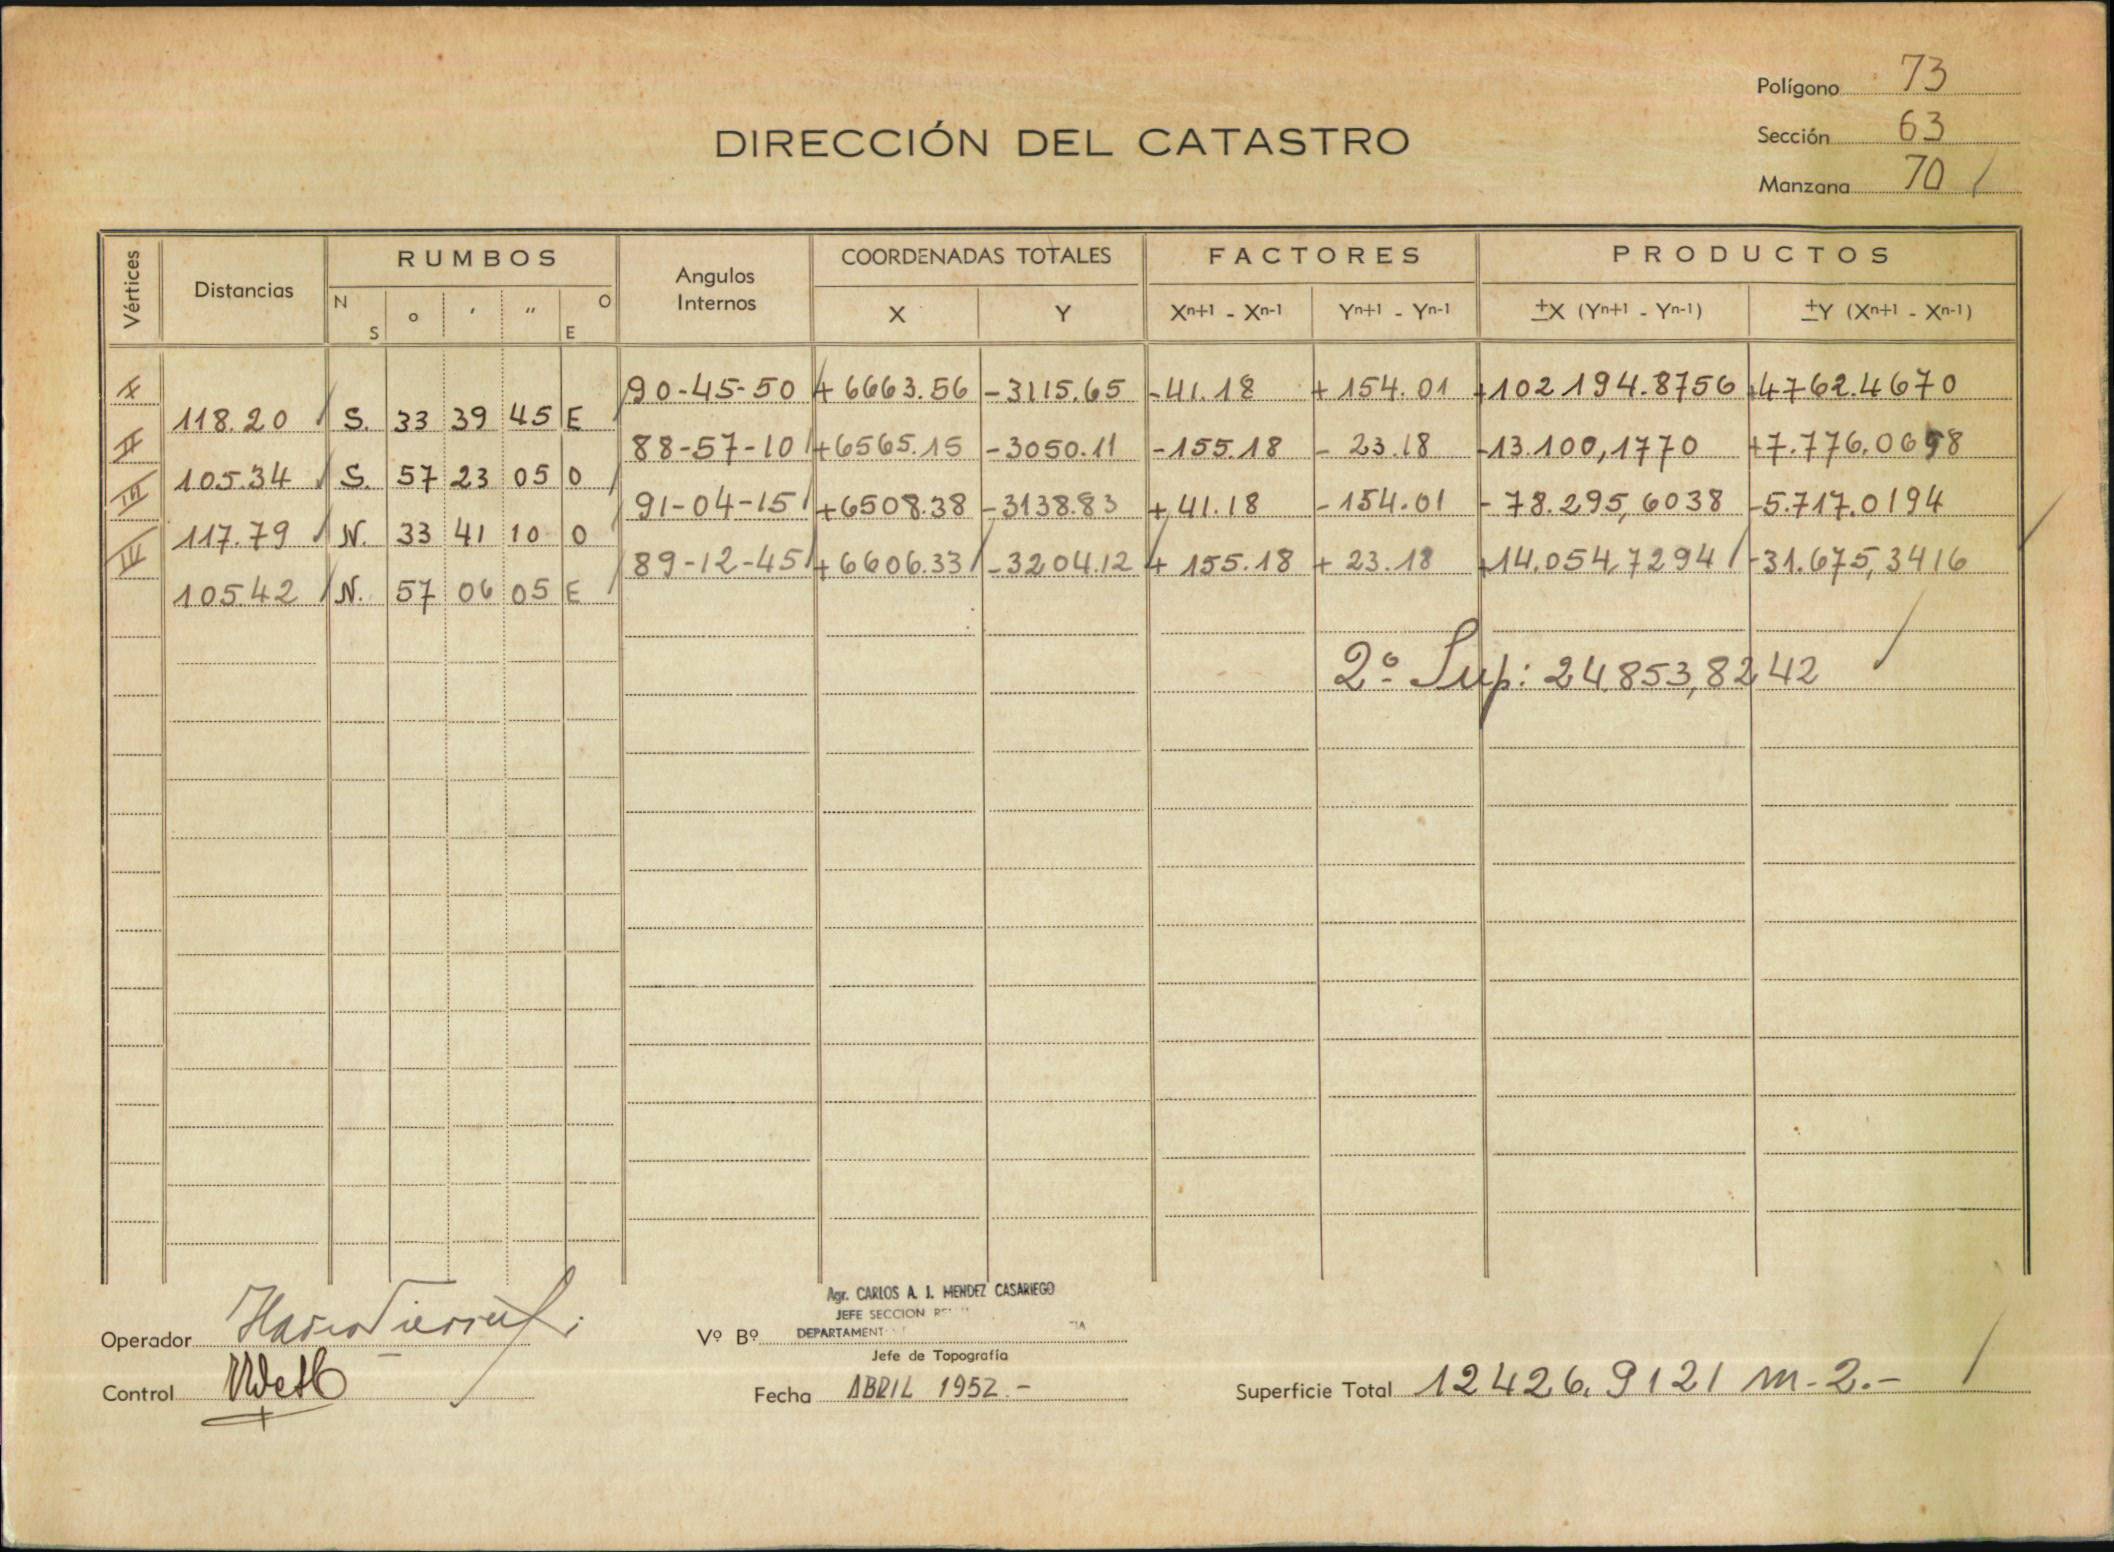 Polígono 73
DIRECCIÓN DEL CATASTRO
Sección 63
Manzana 70
Vértices Distancias RUMBOS Angulos Internos COORDENADAS TOTALES FACTORES PRODUCTOS
N S ° ' " O E X Y Xn+1 - Xn-1 Yn+1 - Yn-1 ±X (Yn+1 - Yn-1) ±Y (Xn+1 - Xn-1)
90-45-50 +6663.56 -3115.65 -41.18 +154.01 +102194.8756 +4762.4670
118.20 S. 33 39 45 E
II 88-57-10 +6565.15 -3050.11 -155.18 - 23.18 -13.100,1770 +7.776.0698
105.34 S. 57 23 05 O
III 91-04-15 +6508.38 -3138.83 +41.18 -154.01 -78.295,6038 -5.717.0194
117.79 N. 33 41 10 O
IV 89-12-45 +6606.33 -3204.12 +155.18 +23.18 +14.054,7294 -31.675,3416
105.42 N. 57 06 05 E
2º Sup: 24.853,8242
Agr. CARLOS A. J. MENDEZ CASARIEGO
JEFE SECCION
Operador Vº Bº DEPARTAMENT
Jefe de Topografía
Control Fecha ABRIL 1952.- Superficie Total 12426.9121 m.2.-